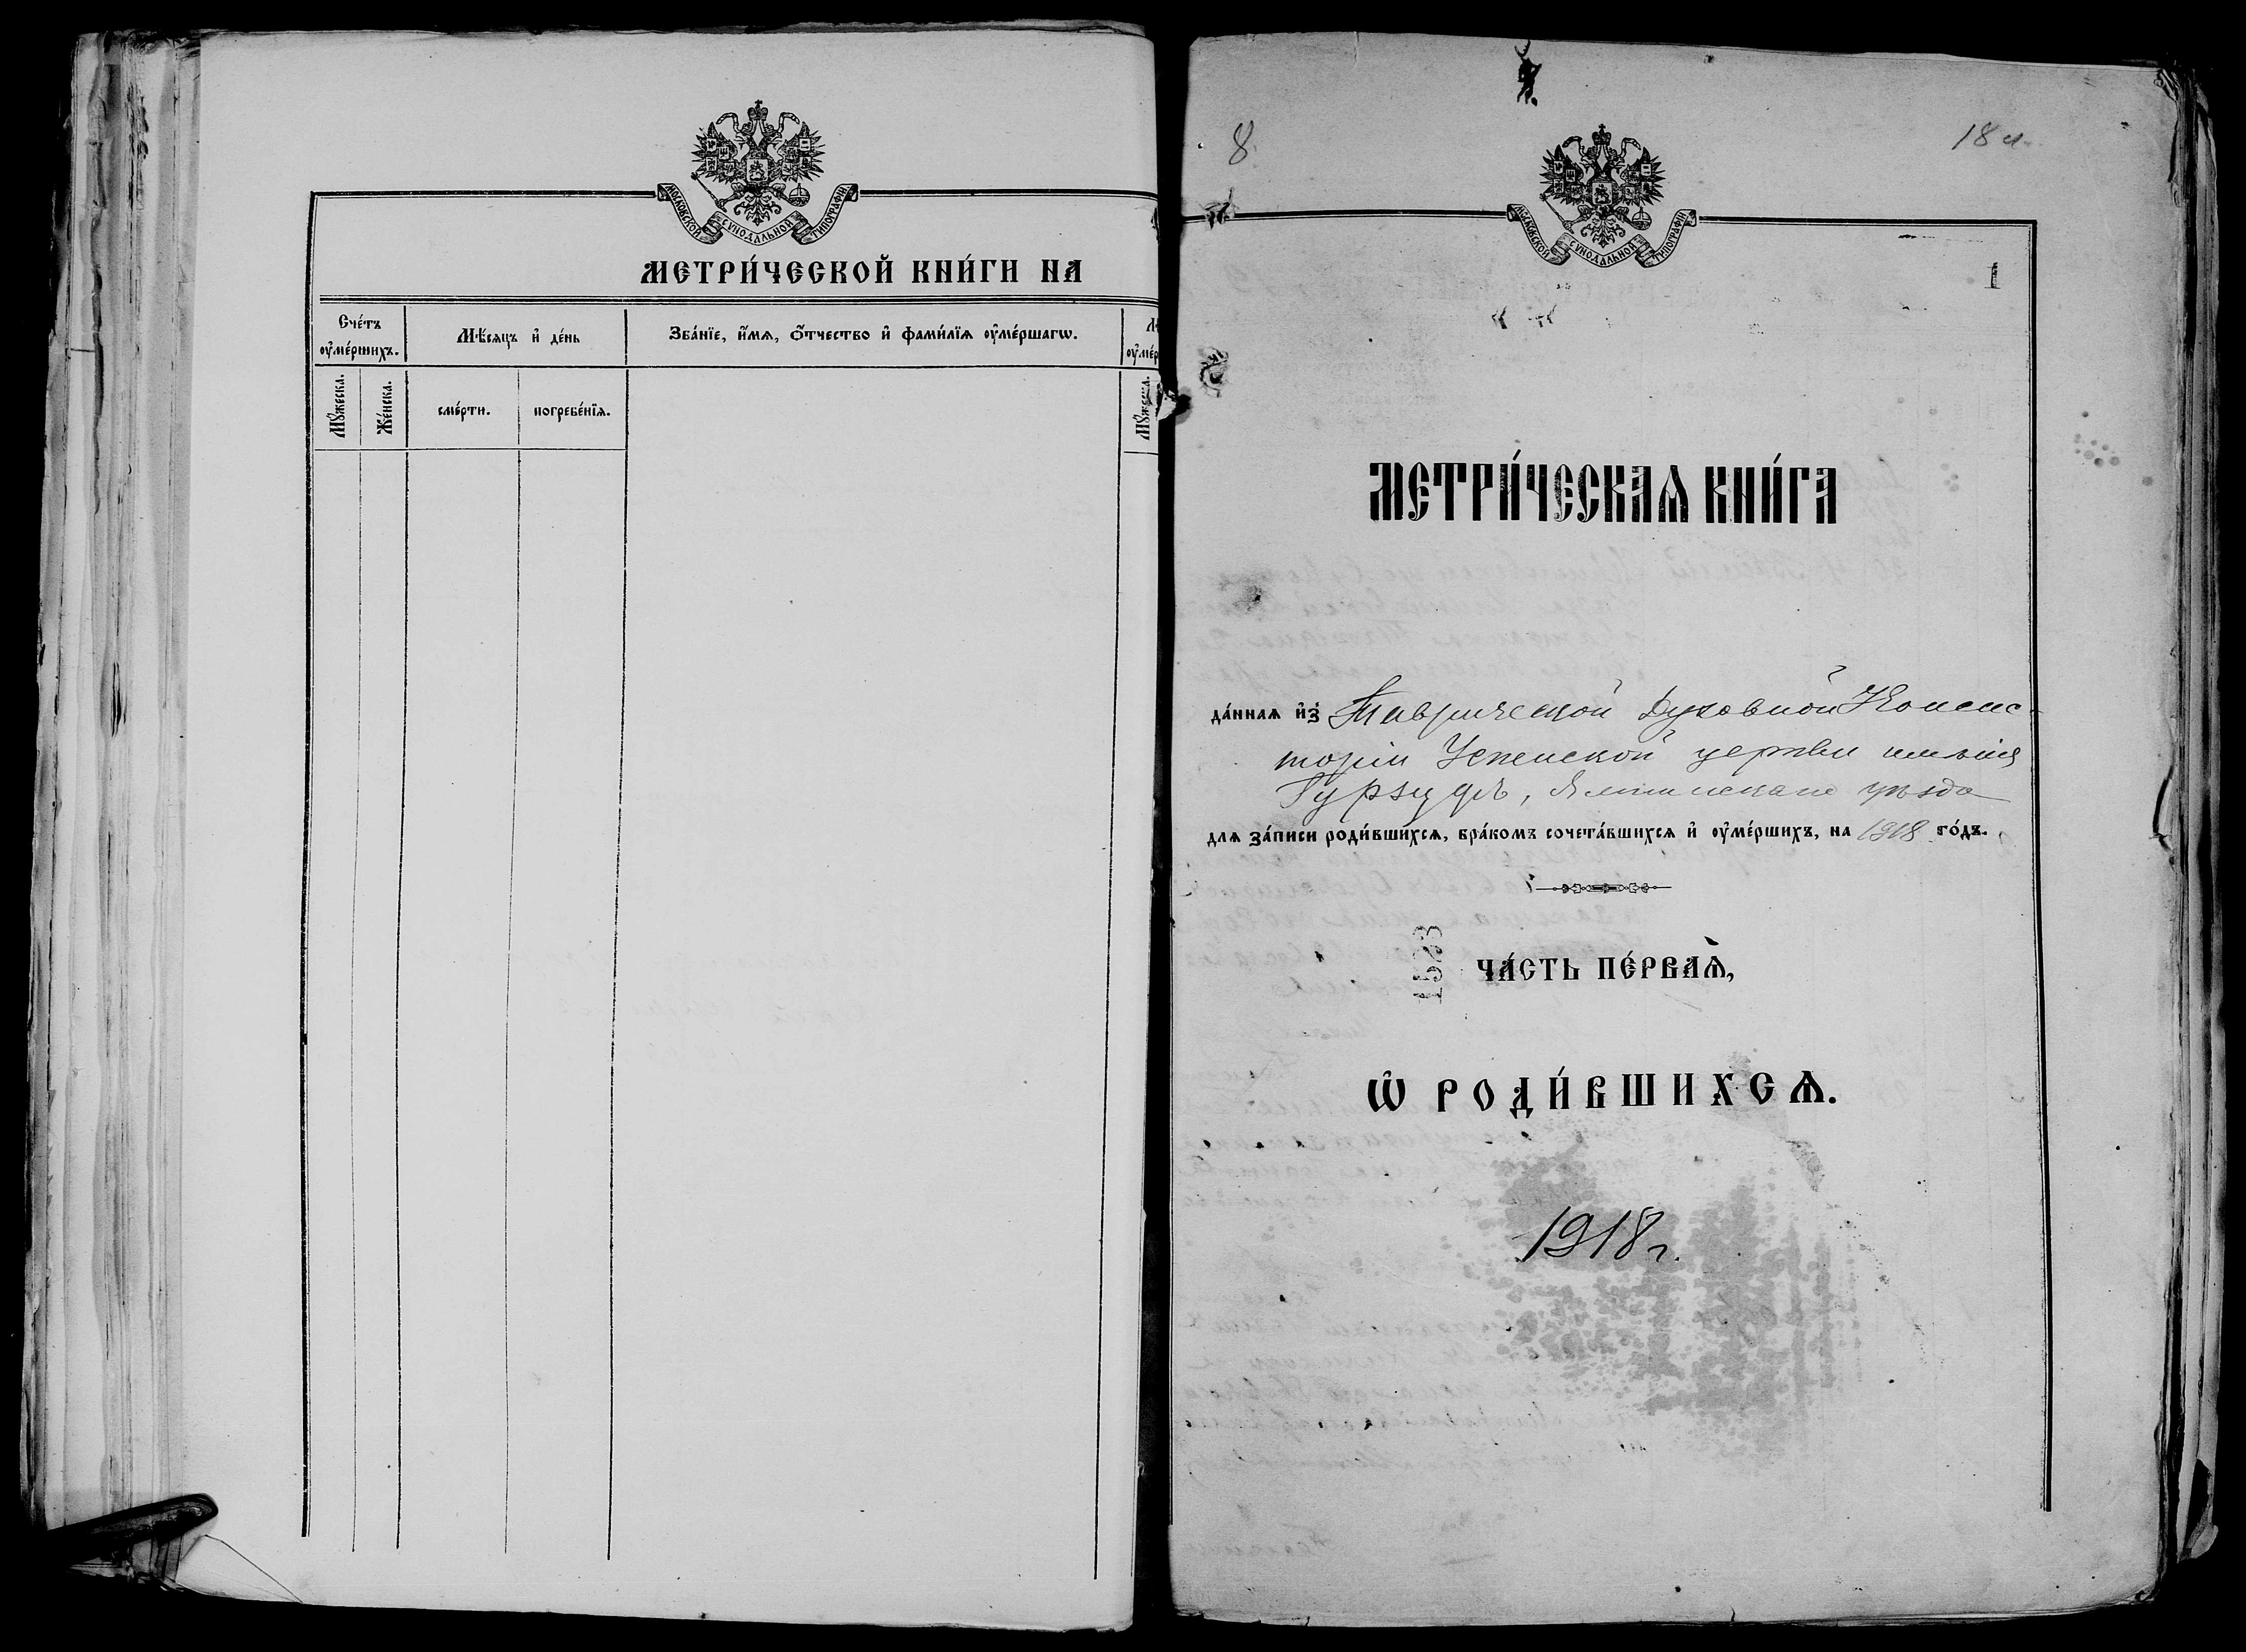 МОСКОВСКОЙ СѴНОДАЛЬНОЙ ТИПОГРАФІИ
МЕТРИ́ЧЕСКОЙ КНИ́ГИ НА
Сче́тъ ᲂу҆ме́ршихъ.
Мѣ́сяцъ и҆ де́нь
Зва́нїе, и҆́мѧ, ѻ҆́тчество и҆ фами́лїѧ ᲂу҆ме́ршагѡ.
Мꙋ́жеска.
Же́нска.
сме́рти.
погребе́нїѧ.
Мꙋ́жеска.
8
18 л.
МОСКОВСКОЙ СѴНОДАЛЬНОЙ ТИПОГРАФІИ
1
МЕТРИ́ЧЕСКАѦ КНИ́ГА
да́ннаѧ и҆з̾ Таврической Духовной Консис-
торіи Успенской церкви имѣнія
Гурзуфъ, Ялтинскаго уѣзда
длѧ за́писи роди́вшихсѧ, бра́комъ сочета́вшихсѧ и҆ ᲂу҆ме́ршихъ, на 1918 го́дъ.
ЧА́СТЬ ПЕ́РВАѦ,
Ѡ҆ РОДИ́ВШИХСѦ.
1918 г.